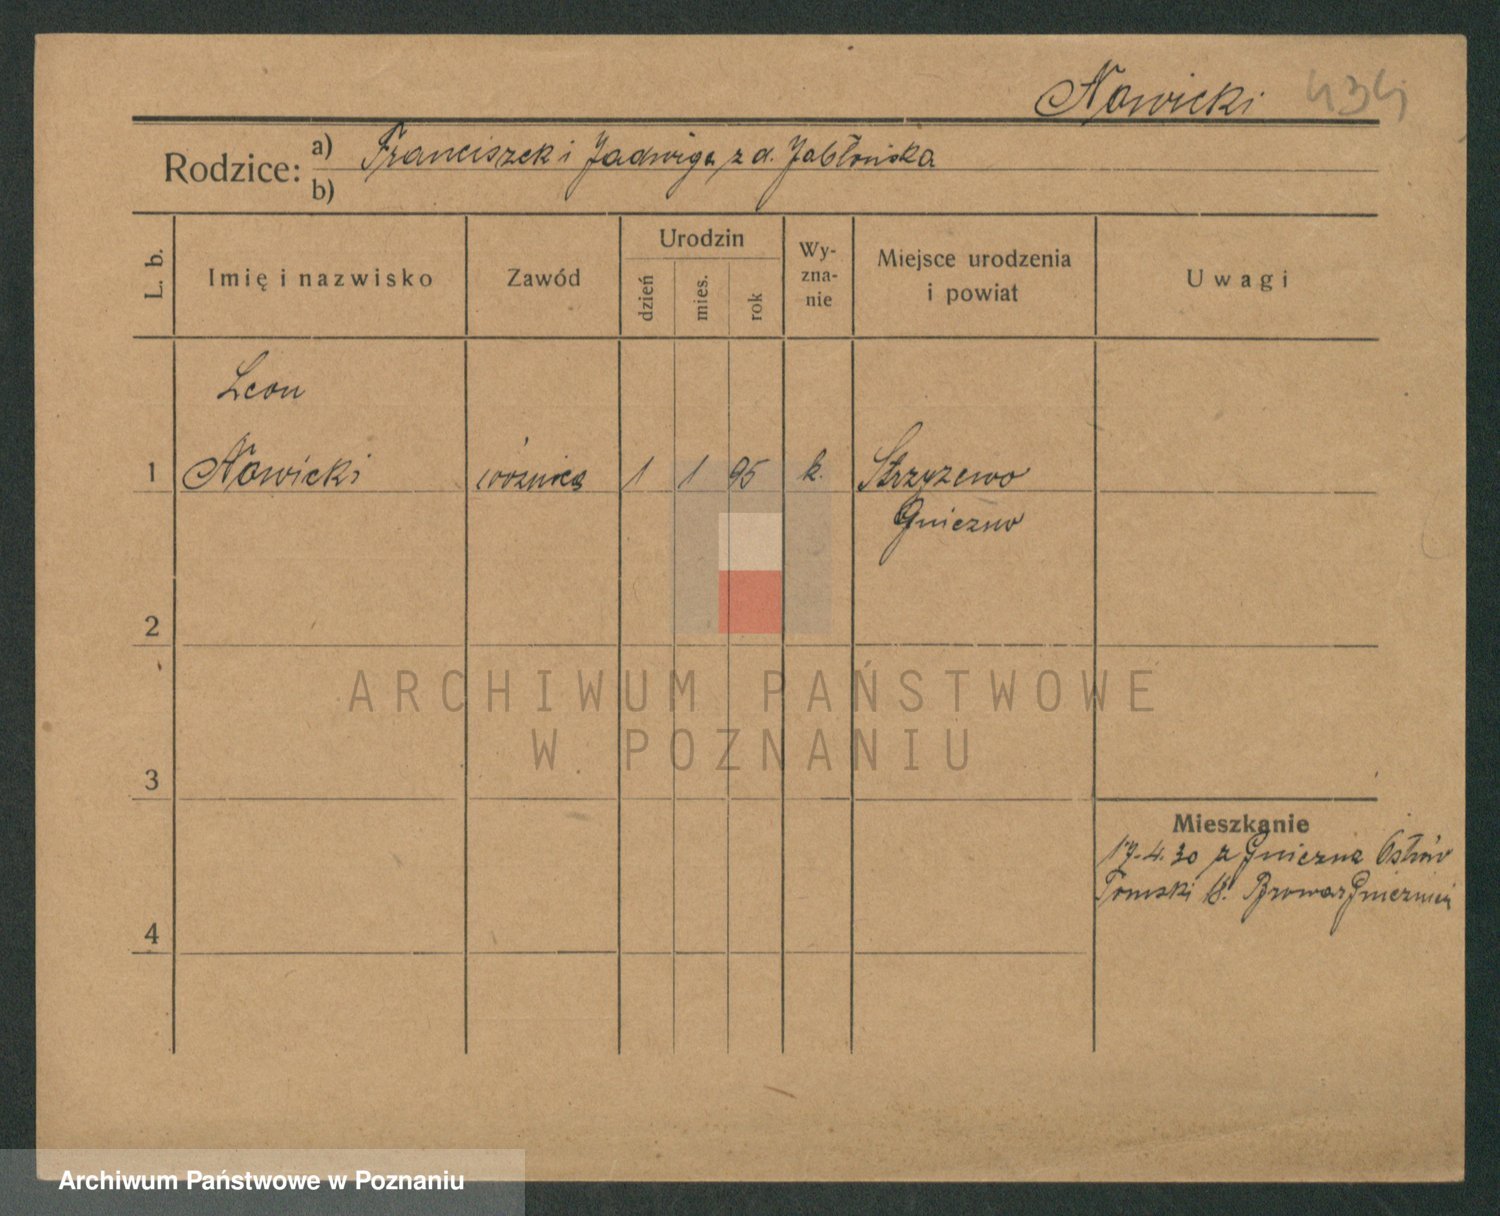 Nowicki 434
Rodzice: a) Franciszek i Jadwiga z d. Jabłońska
b)
L. b. Imię i nazwisko Zawód Urodzin dzień mies. rok Wy-zna-nie Miejsce urodzenia i powiat Uwagi
Leon
1 Nowicki woźnica 1 1 95 k. Strzyzewo
Gniezno
2
ARCHIWUM PAŃSTWOWE
W POZNANIU
3
Mieszkanie
17.4.30 z Gniezna Ostrów
Tumski Browar
4
Archiwum Państwowe w Poznaniu